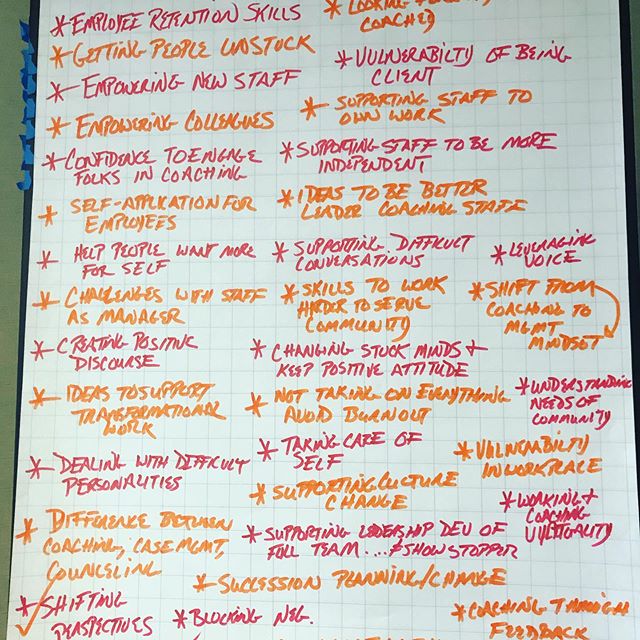 * EMPLOYEE RETENTION SKILLS
* GETTING PEOPLE UNSTUCK
* EMPOWERING NEW STAFF
* EMPOWERING COLLEAGUES
* CONFIDENCE TO ENGAGE
FOLKS IN COACHING
* SELF-APPLICATION FOR
EMPLOYEES
* HELP PEOPLE WANT MORE
FOR SELF
* CHALLENGES WITH STAFF
AS MANAGER
* CREATING POSITIVE
DISCOURSE
* IDEAS TO SUPPORT
TRANSFORMATIONAL
WORK
* DEALING WITH DIFFICULT
PERSONALITIES
* DIFFERENCE BETWEEN
COACHING, CASE MGMT,
COUNCELING
* SHIFTING
PERSPECTIVES
* LOOKING
COACHED
* VULNERABILTY OF BEING
CLIENT
* SUPPORTING STAFF TO
OWN WORK
* SUPPORTING STAFF TO BE MORE
INDEPENDENT
* IDEAS TO BE BETTER
LEADER COACHING STAFF
* SUPPORTING DIFFICULT
CONVERSATIONS
* SKILLS TO WORK
HARDER TO SERVE
COMMUNITY
* CHANGING STUCK MINDS +
KEEP POSITIVE ATTITUDE
* NOT TAKING ON EVERYTHING
AVOID BURNOUT
* TAKING CARE OF
SELF
* SUPPORTING CULTURE
CHANGE
* SUPPORTING LEADERSHIP DEV OF
FULL TEAM... SHOW STOPPER
* SUCCESSION PLANNING/CHANGE
* BLOCKING NEG.
* LEVERAGING
VOICE
* SHIFT FROM
COACHING TO
MGMT
MINDSET
* UNDERSTANDING
NEEDS OF
COMMUNITY
* VULNERABILTY
IN WORKPLACE
* WORKING +
COACHING
* COACHING THROUGH
FEEDBACK